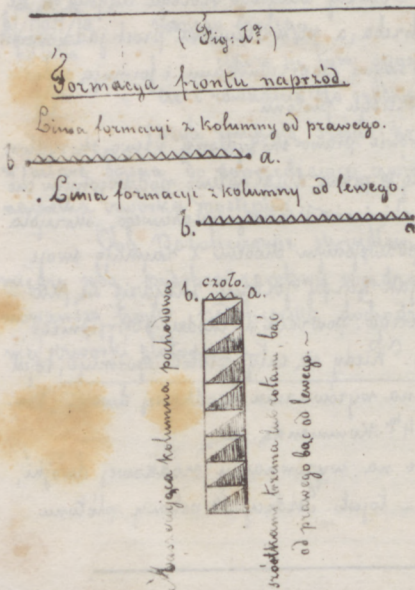 (Fig: 1ª)
Formacya frontu naprzód.
Linia formacyi z kolumny od prawego.
b. a.
Linia formacyi z kolumny od lewego.
b. a
czoło.
b. a.
Maszerująca kolumna pochodowa
szóstkami, trzema lub rotami, bąć
od prawego bąć od lewego.